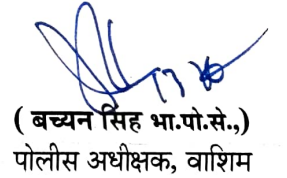 ( बच्चन सिंह भा.पो.से.,)
पोलीस अधीक्षक, वाशिम